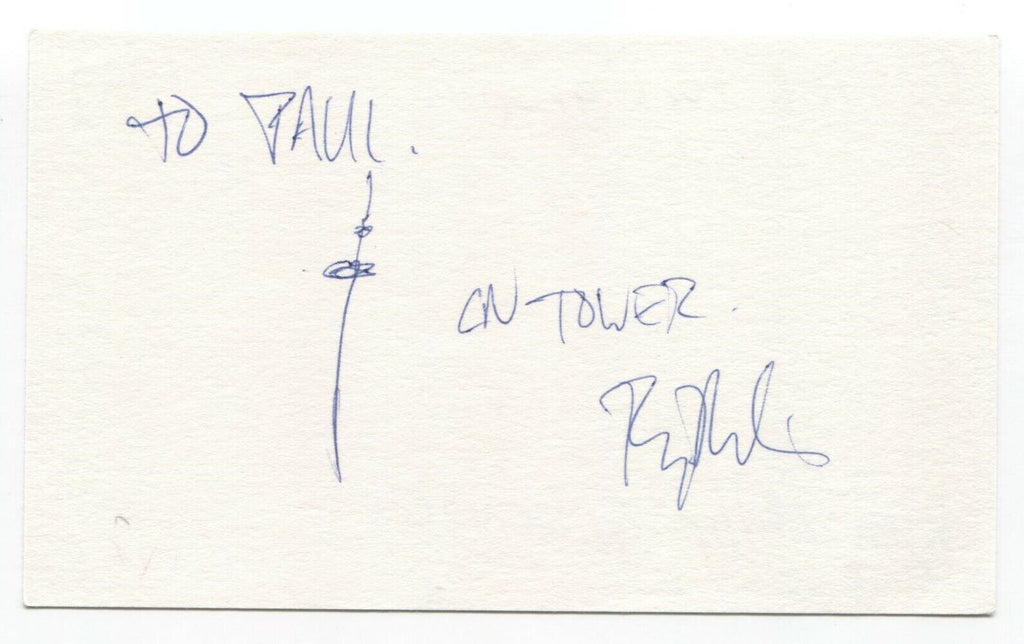 TO PAUL.
CN TOWER.